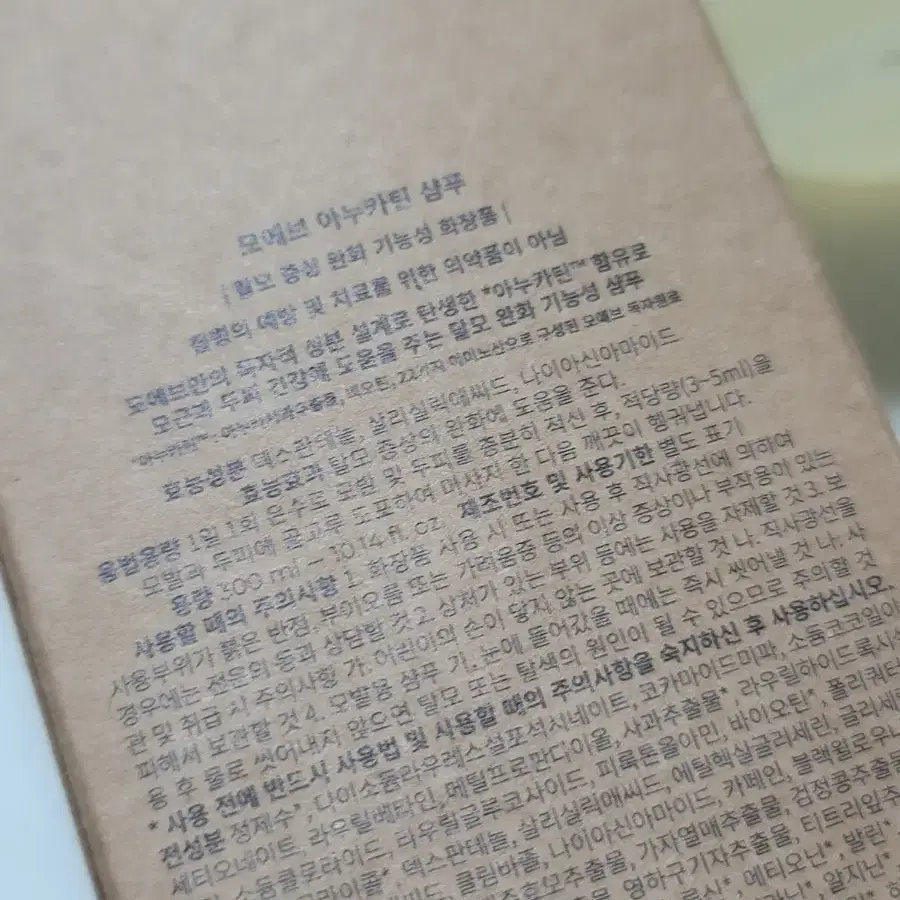 모에브 아누카틴 샴푸
| 탈모 증상 완화 기능성 화장품 |
질병의 예방 및 치료를 위한 의약품이 아님
모에브만의 독자적 성분 설계로 탄생한 *아누카틴™ 함유로
모근과 두피 건강에 도움을 주는 탈모 완화 기능성 샴푸
*아누카틴™: 비오틴, 22가지 아미노산으로 구성된 모에브 독자원료
효능성분 덱스판테놀, 살리실릭애씨드, 나이아신아마이드
효능효과 탈모 증상의 완화에 도움을 준다.
용법용량 1일 1회 온수로 모발 및 두피를 충분히 적신 후, 적당량(3~5ml)을
모발과 두피에 골고루 도포하여 마사지 한 다음 깨끗이 헹궈냅니다.
용량 300 ml – 10.14 fl. oz. 제조번호 및 사용기한 별도 표기
사용할 때의 주의사항 1. 화장품 사용 시 또는 사용 후 직사광선에 의하여
사용부위가 붉은 반점, 부어오름 또는 가려움증 등의 이상 증상이나 부작용이 있는
경우에는 전문의 등과 상담할 것 2. 상처가 있는 부위 등에는 사용을 자제할 것 3. 보
관 및 취급 시 주의사항 가. 어린이의 손이 닿지 않는 곳에 보관할 것 나. 직사광선을
피해서 보관할 것 4. 모발용 샴푸 가. 눈에 들어갔을 때에는 즉시 씻어낼 것 나. 사
용 후 물로 씻어내지 않으면 탈모 또는 탈색의 원인이 될 수 있으므로 주의할 것
* 사용 전에 반드시 사용법 및 사용할 때의 주의사항을 숙지하신 후 사용하십시오.
전성분 정제수*, 다이소듐라우레스설포석시네이트, 코카마이드미파, 소듐코코일이
세티오네이트, 라우릴베타인, 메틸프로판다이올, 사과추출물*, 라우릴하이드록시
소듐클로라이드, 라우릴글루코사이드, 피록톤올아민, 바이오틴*, 폴리쿼터
덱스판테놀, 살리실릭애씨드, 에틸헥실글리세린, 글리세
클림바졸, 나이아신아마이드, 카페인, 블랙윌로우
추출물, 가자열매추출물, 검정콩추출물
영하구기자추출물, 티트리잎추
메티오닌*, 발린*
알지닌*